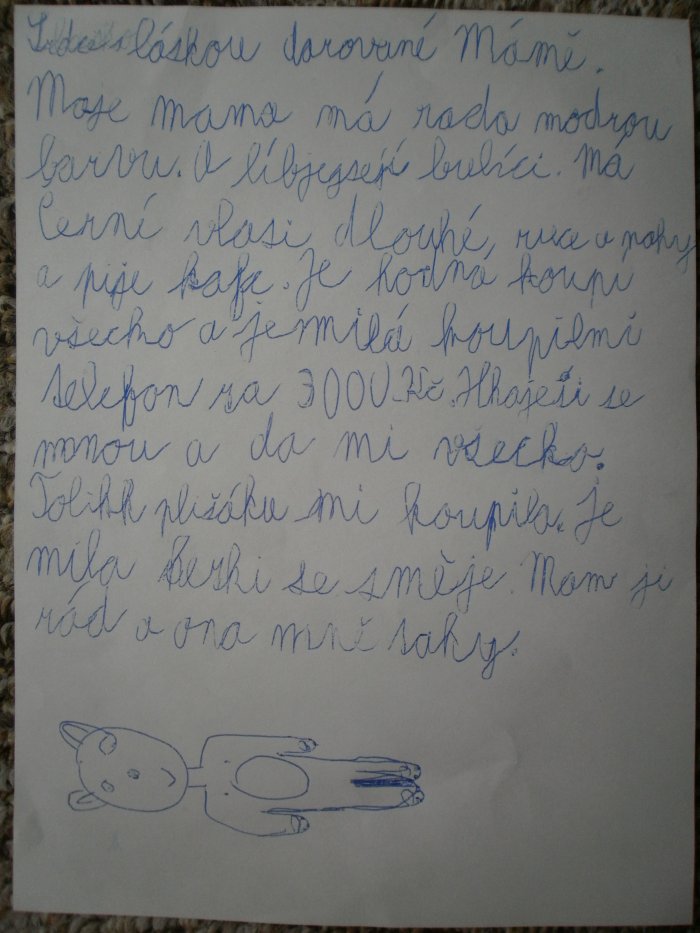 láskou darované Mámě.
Moje mama má rada modrou
barvu. A líbjejsejí bulíci. Má
černí vlasi dlouhé, ruce a nohy
a pije kafe. Je hodná koupi
všecko a jemilá koupilmi
telefon za 3000 Kč. Hhaješi se
mnou a da mi všecko.
Tolikk plišáku mi koupila. Je
mila heski se směje. Mam ji
rád a ona mně taky.